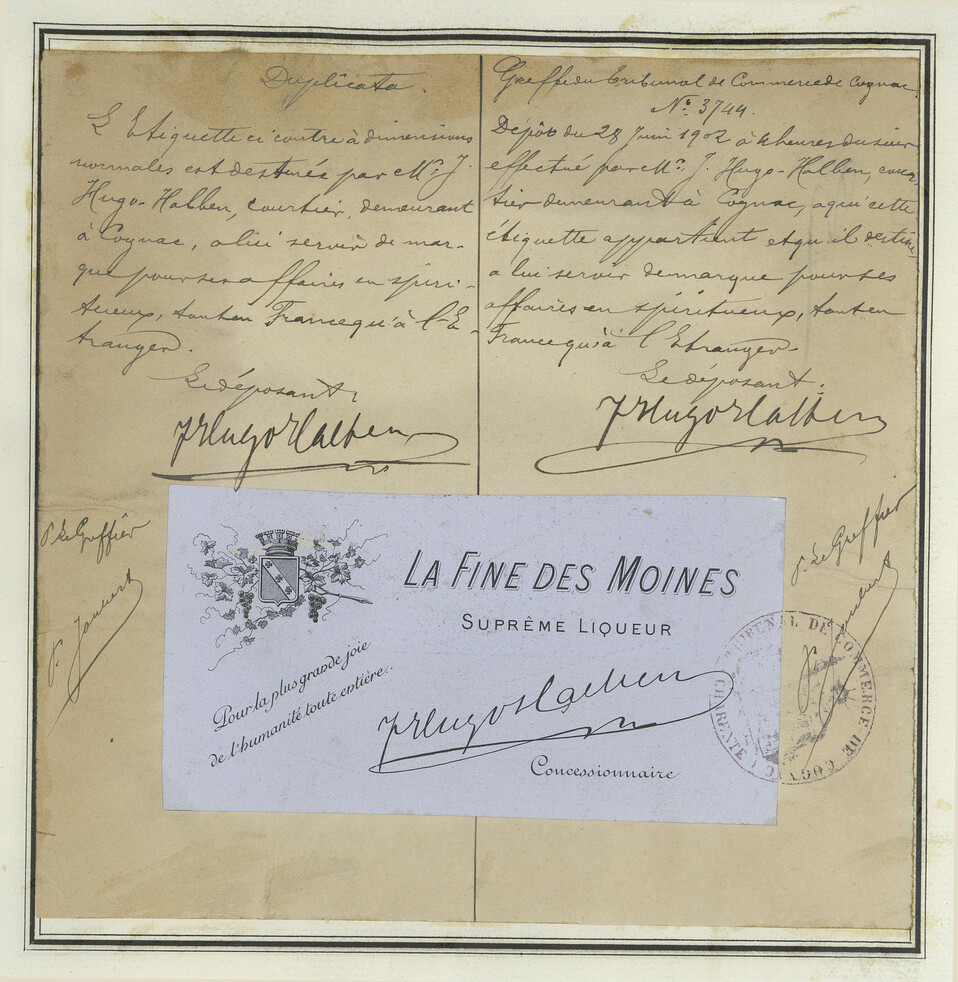 Duplicata.
L'Etiquette ci contre à dimensions
normales est destinée par Mr. J.
Hugo-Halben, courtier, demeurant
à Cognac, à lui servir de mar-
que pour ses affaires en spiri-
tueux, tant en France qu'à l'E-
tranger.
Le déposant,
J Hugo Halben
P. Le Greffier
P. Jaubert
Greffe du Tribunal de Commerce de Cognac.
No. 3744.
Dépôt du 28 Juin 1902 à 4 heures du soir
effectué par Mr. J. Hugo-Halben, cour-
tier demeurant à Cognac, à qui cette
étiquette appartient et qu'il destine
à lui servir de marque pour ses
affaires en spiritueux, tant en
France qu'à l'Etranger.
Le déposant,
J Hugo Halben
P. Le Greffier
LA FINE DES MOINES
SUPRÊME LIQUEUR
Pour la plus grande joie
de l'humanité toute entière..
J Hugo Halben
Concessionnaire
TRIBUNAL DE COMMERCE DE COGNAC
(CHARENTE)